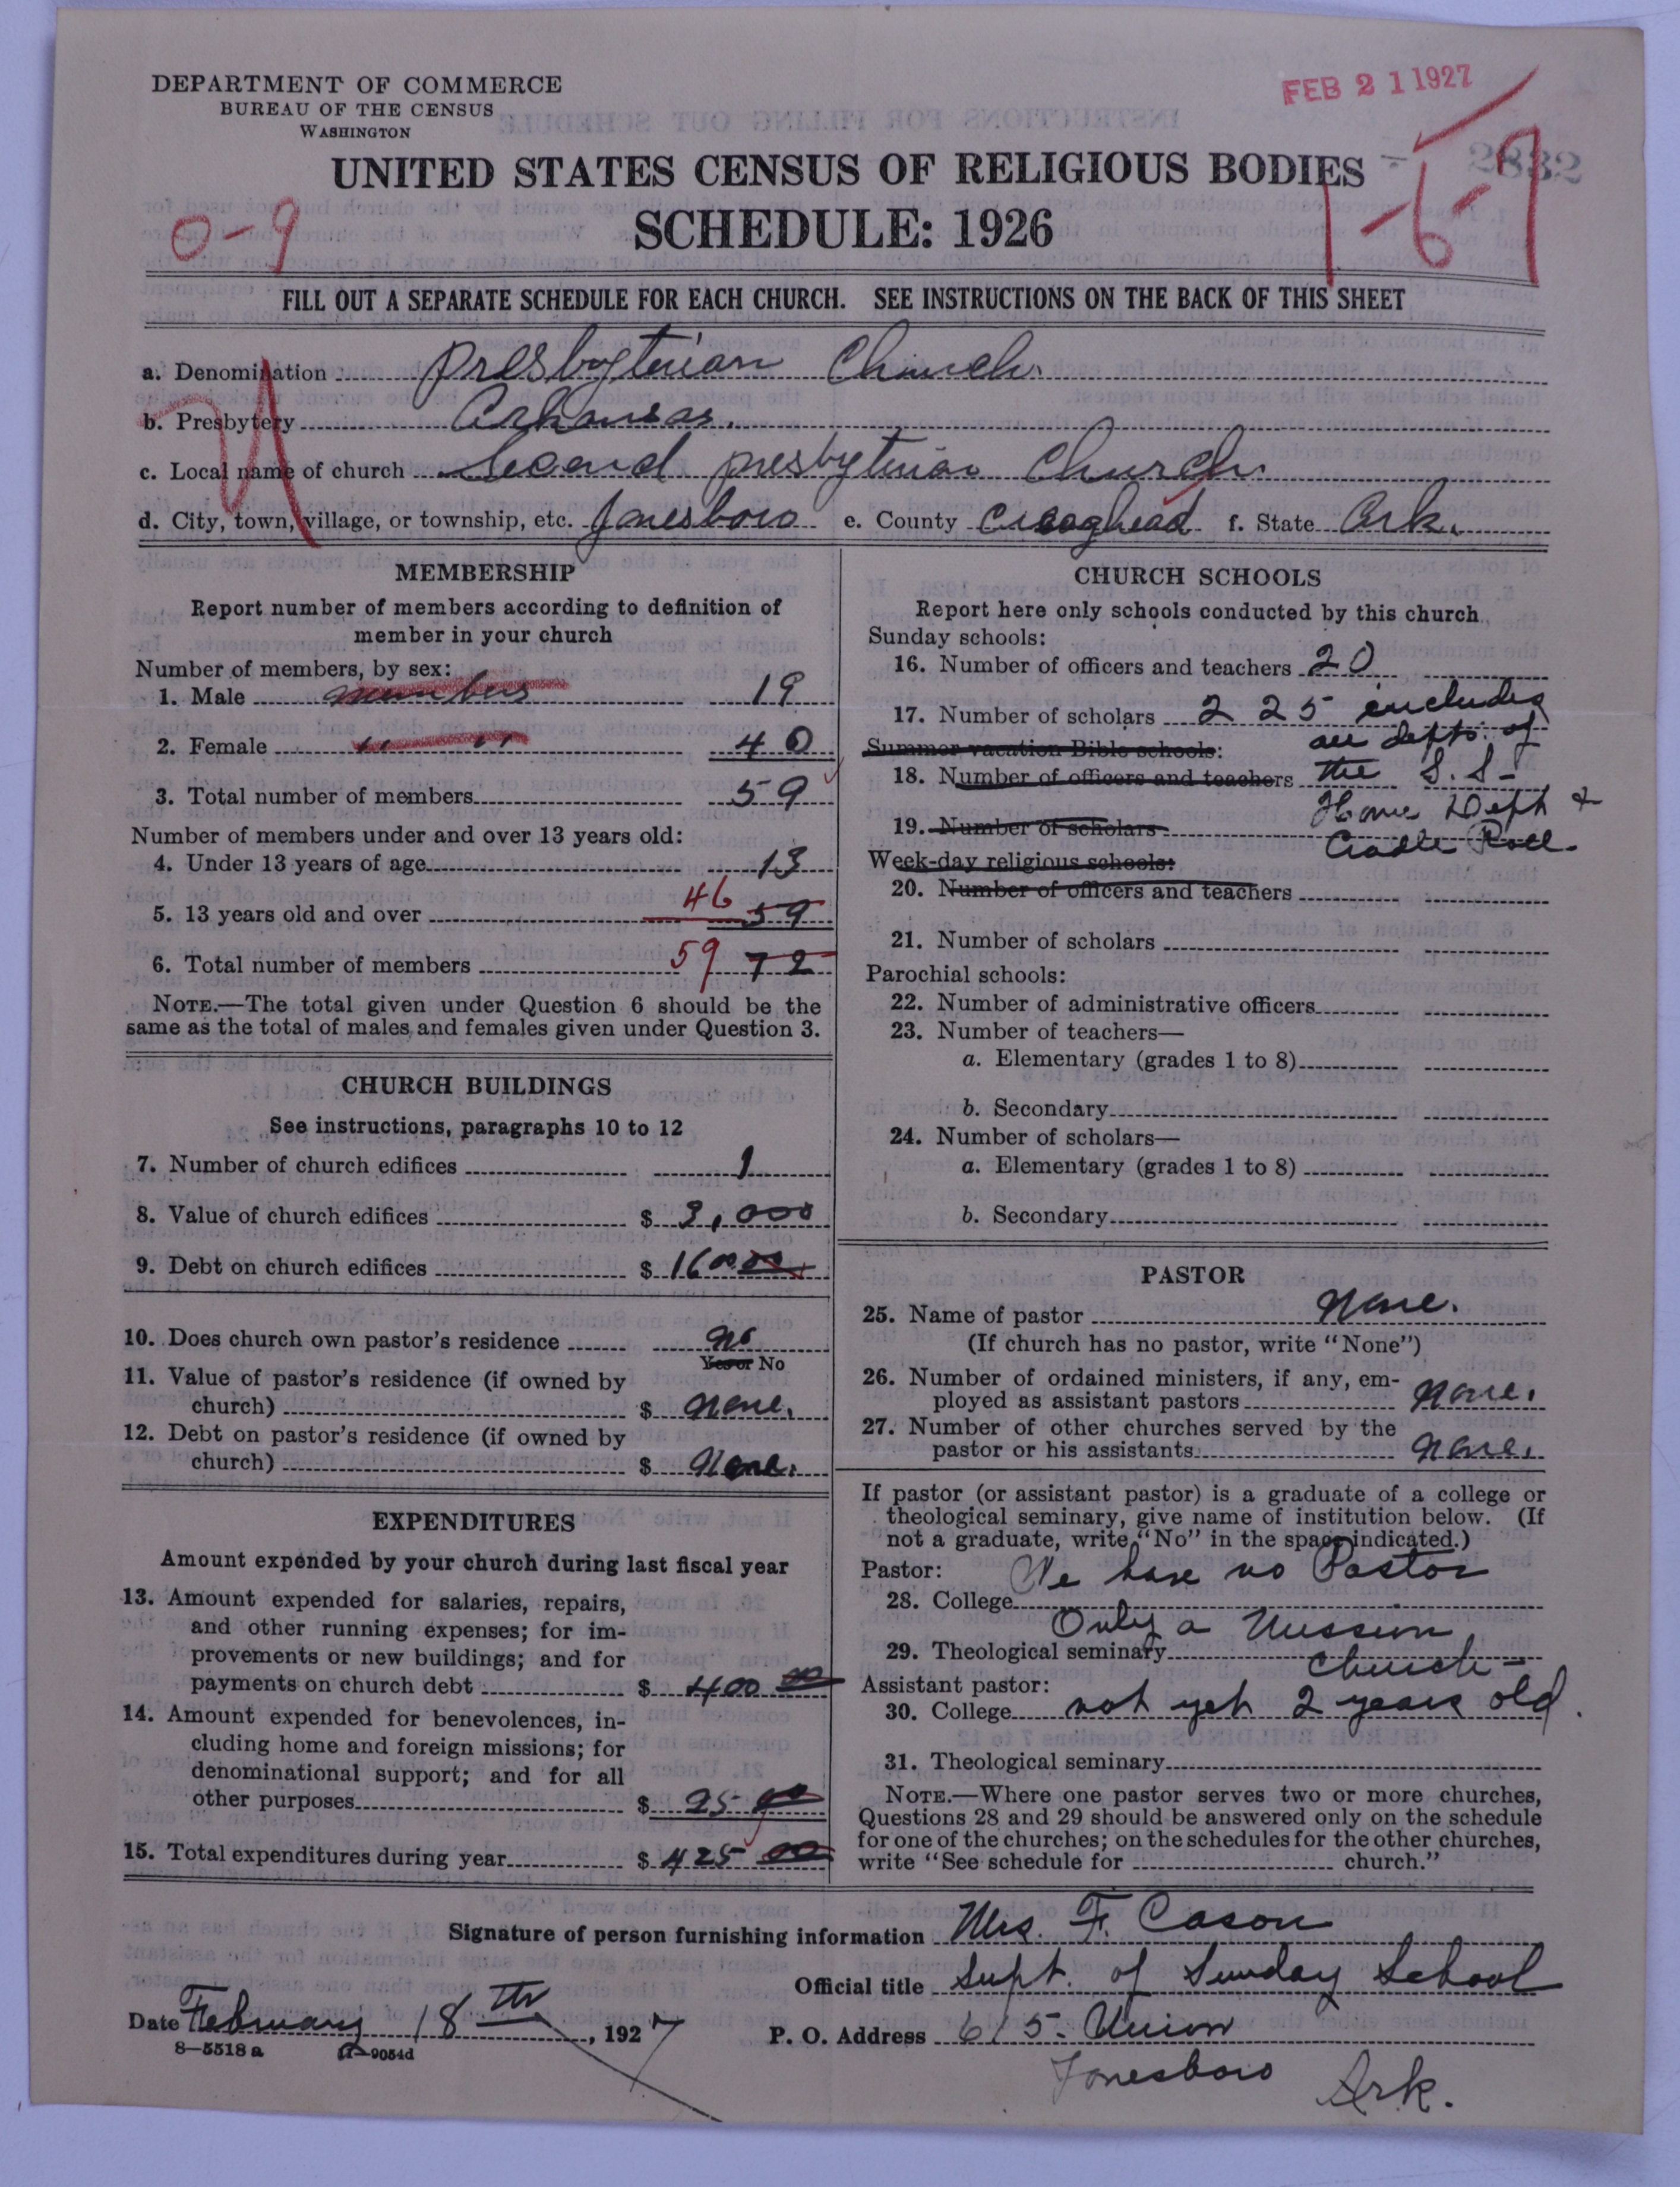 DEPARTMENT OF COMMERCE
BUREAU OF THE CENSUS
WASHINGTON
FEB 21 1927
2832
UNITED STATES CENSUS OF RELIGIOUS BODIES
SCHEDULE: 1926
0-9
1-6-9
FILL OUT A SEPARATE SCHEDULE FOR EACH CHURCH. SEE INSTRUCTIONS ON THE BACK OF THIS SHEET
a. Denomination Presbyterian Church.
b. Presbytery Arkansas.
c. Local name of church Second presbyterian Church.
d. City, town, village, or township, etc. Jonesboro e. County Craghead f. State Ark.
MEMBERSHIP
Report number of members according to definition of
member in your church
Number of members, by sex:
1. Male members 19
2. Female " " 40
3. Total number of members 59
Number of members under and over 13 years old:
4. Under 13 years of age 13
5. 13 years old and over 46 59
6. Total number of members 59 72
NOTE.—The total given under Question 6 should be the
same as the total of males and females given under Question 3.
CHURCH BUILDINGS
See instructions, paragraphs 10 to 12
7. Number of church edifices 1
8. Value of church edifices $ 3,000
9. Debt on church edifices $ 1600 00
10. Does church own pastor's residence no
Yes or No
11. Value of pastor's residence (if owned by
church) $ none.
12. Debt on pastor's residence (if owned by
church) $ None.
EXPENDITURES
Amount expended by your church during last fiscal year
13. Amount expended for salaries, repairs,
and other running expenses; for im-
provements or new buildings; and for
payments on church debt $ 400 00
14. Amount expended for benevolences, in-
cluding home and foreign missions; for
denominational support; and for all
other purposes $ 25 00
15. Total expenditures during year $ 425 00
CHURCH SCHOOLS
Report here only schools conducted by this church
Sunday schools:
16. Number of officers and teachers 20
17. Number of scholars 225 includes
Summer vacation Bible schools: all depts. of
18. Number of officers and teachers the S.S-
Home Dept &
19. Number of scholars Cradle Roll.
Week-day religious schools:
20. Number of officers and teachers
21. Number of scholars
Parochial schools:
22. Number of administrative officers
23. Number of teachers—
a. Elementary (grades 1 to 8)
b. Secondary
24. Number of scholars—
a. Elementary (grades 1 to 8)
b. Secondary
PASTOR
25. Name of pastor None.
(If church has no pastor, write "None")
26. Number of ordained ministers, if any, em-
ployed as assistant pastors None.
27. Number of other churches served by the
pastor or his assistants None.
If pastor (or assistant pastor) is a graduate of a college or
theological seminary, give name of institution below. (If
not a graduate, write "No" in the space indicated.)
Pastor: We have no Pastor
28. College
Only a Mission
29. Theological seminary
Church-
Assistant pastor:
30. College not yet 2 years old.
31. Theological seminary
NOTE.—Where one pastor serves two or more churches,
Questions 28 and 29 should be answered only on the schedule
for one of the churches; on the schedules for the other churches,
write "See schedule for church."
Signature of person furnishing information Mrs. F. Cason
Official title Supt. of Sunday School
Date February 18th, 1927 P. O. Address 615. Union
8-5518a 17-9054d
Jonesboro Ark.